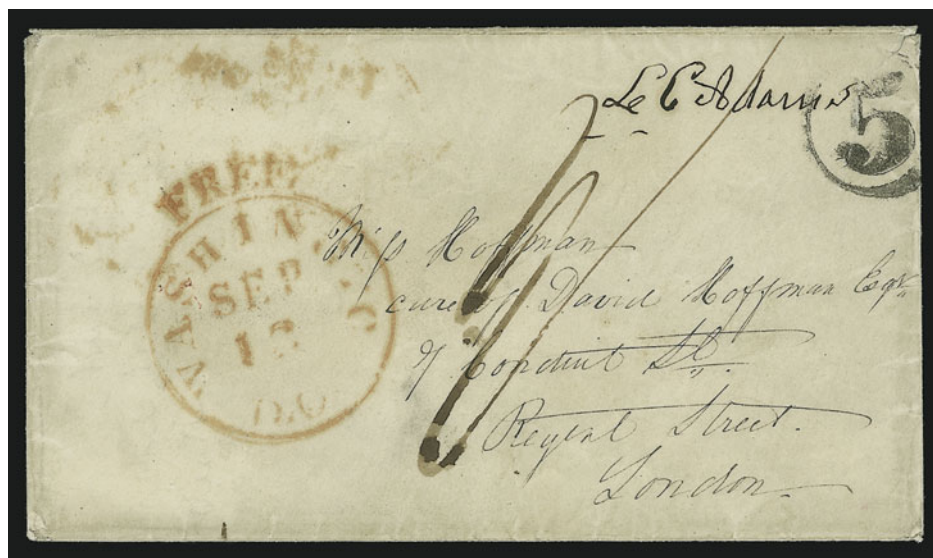 L. C. Adams
5
FREE
WASHINGTON
SEP
D.C.
Miss Hoffman
care of David Hoffman Esqr
Conduit St.
Regent Street.
London